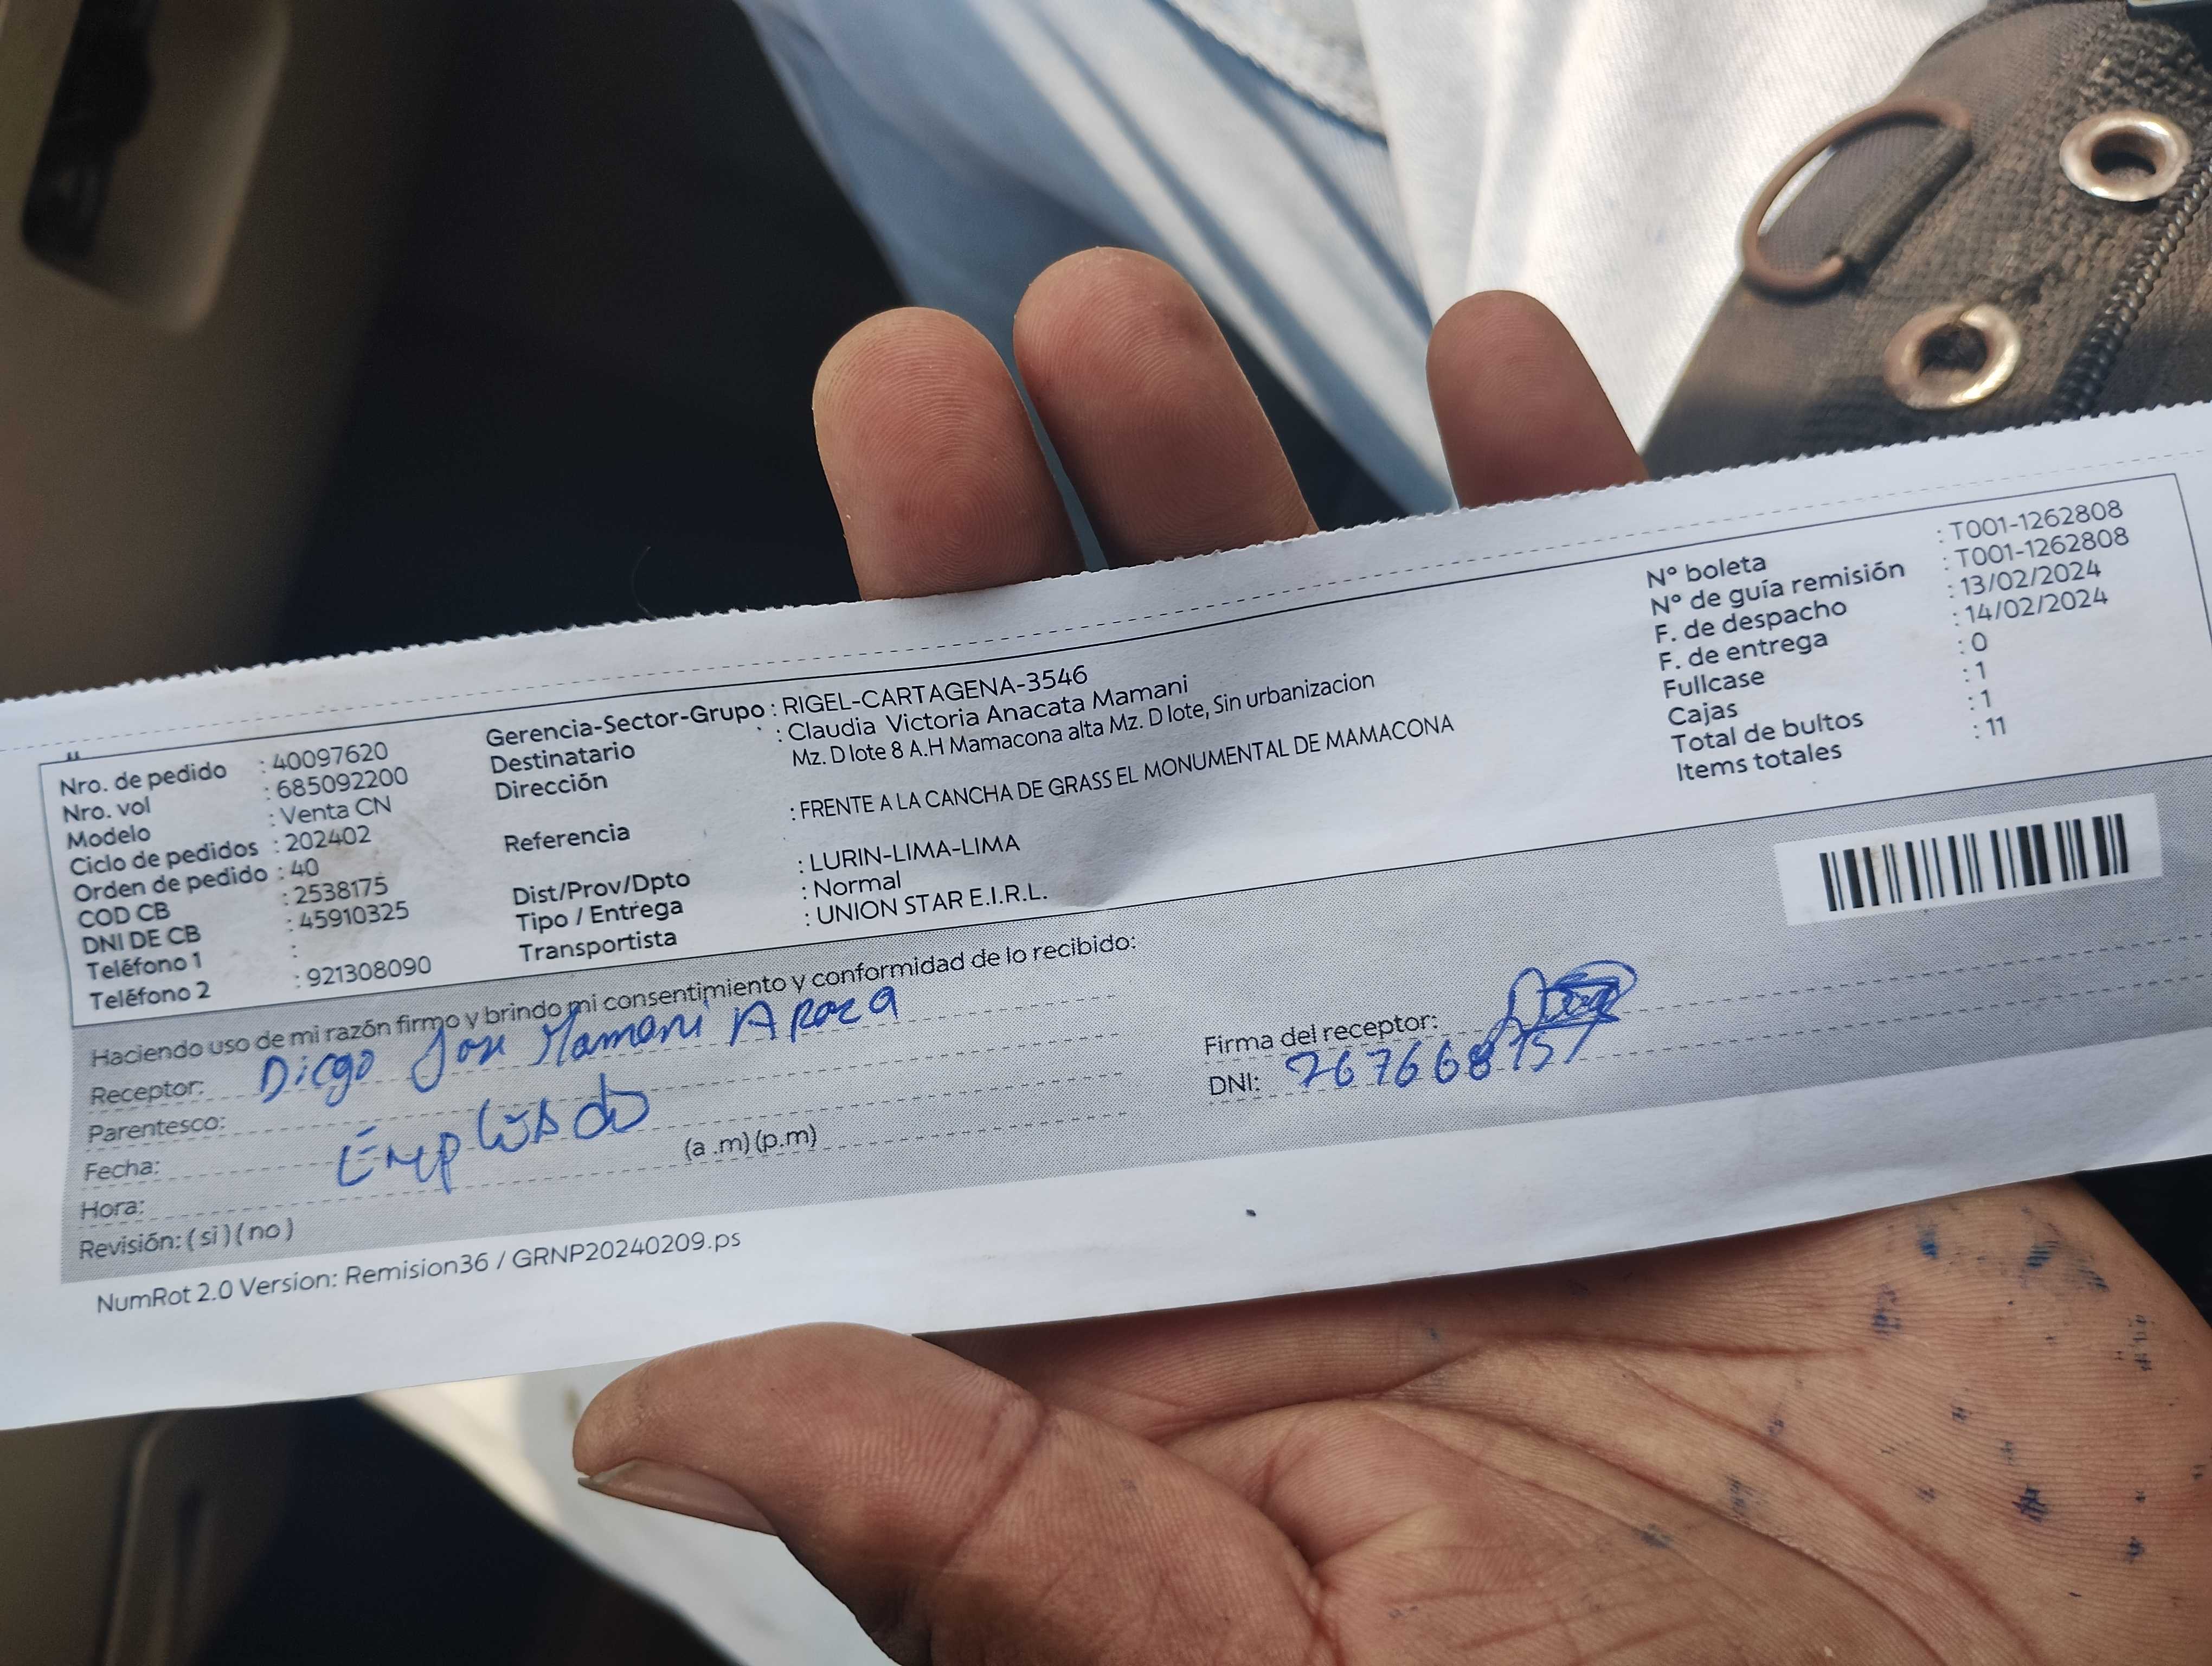 Nro. de pedido : 40097620
Nro. vol : 685092200
Modelo : Venta CN
Ciclo de pedidos : 202402
Orden de pedido : 40
COD CB : 2538175
DNI DE CB : 45910325
Teléfono 1 :
Teléfono 2 : 921308090
Gerencia-Sector-Grupo : RIGEL-CARTAGENA-3546
Destinatario : Claudia Victoria Anacata Mamani
Dirección Mz. D lote 8 A.H Mamacona alta Mz. D lote, Sin urbanizacion
Referencia : FRENTE A LA CANCHA DE GRASS EL MONUMENTAL DE MAMACONA
Dist/Prov/Dpto : LURIN-LIMA-LIMA
Tipo / Entrega : Normal
Transportista : UNION STAR E.I.R.L.
N° boleta : T001-1262808
N° de guía remisión : T001-1262808
F. de despacho : 13/02/2024
F. de entrega : 14/02/2024
Fullcase : 0
Cajas : 1
Total de bultos : 1
Items totales : 11
Haciendo uso de mi razón firmo y brindo mi consentimiento y conformidad de lo recibido:
Receptor: Diego Jose Mamani
Parentesco: Empleado
Fecha:
Hora: (a .m) (p.m)
Revisión: ( si ) ( no )
Firma del receptor:
DNI:
NumRot 2.0 Version: Remision36 / GRNP20240209.ps